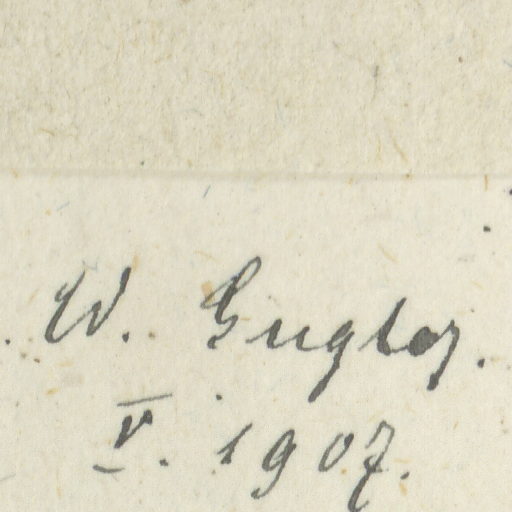 W. Gugler.
V. 1907.